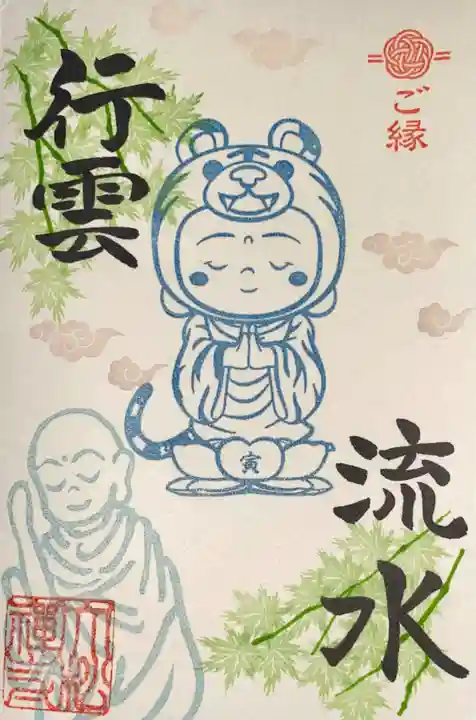 行雲
流水
ご縁
寅